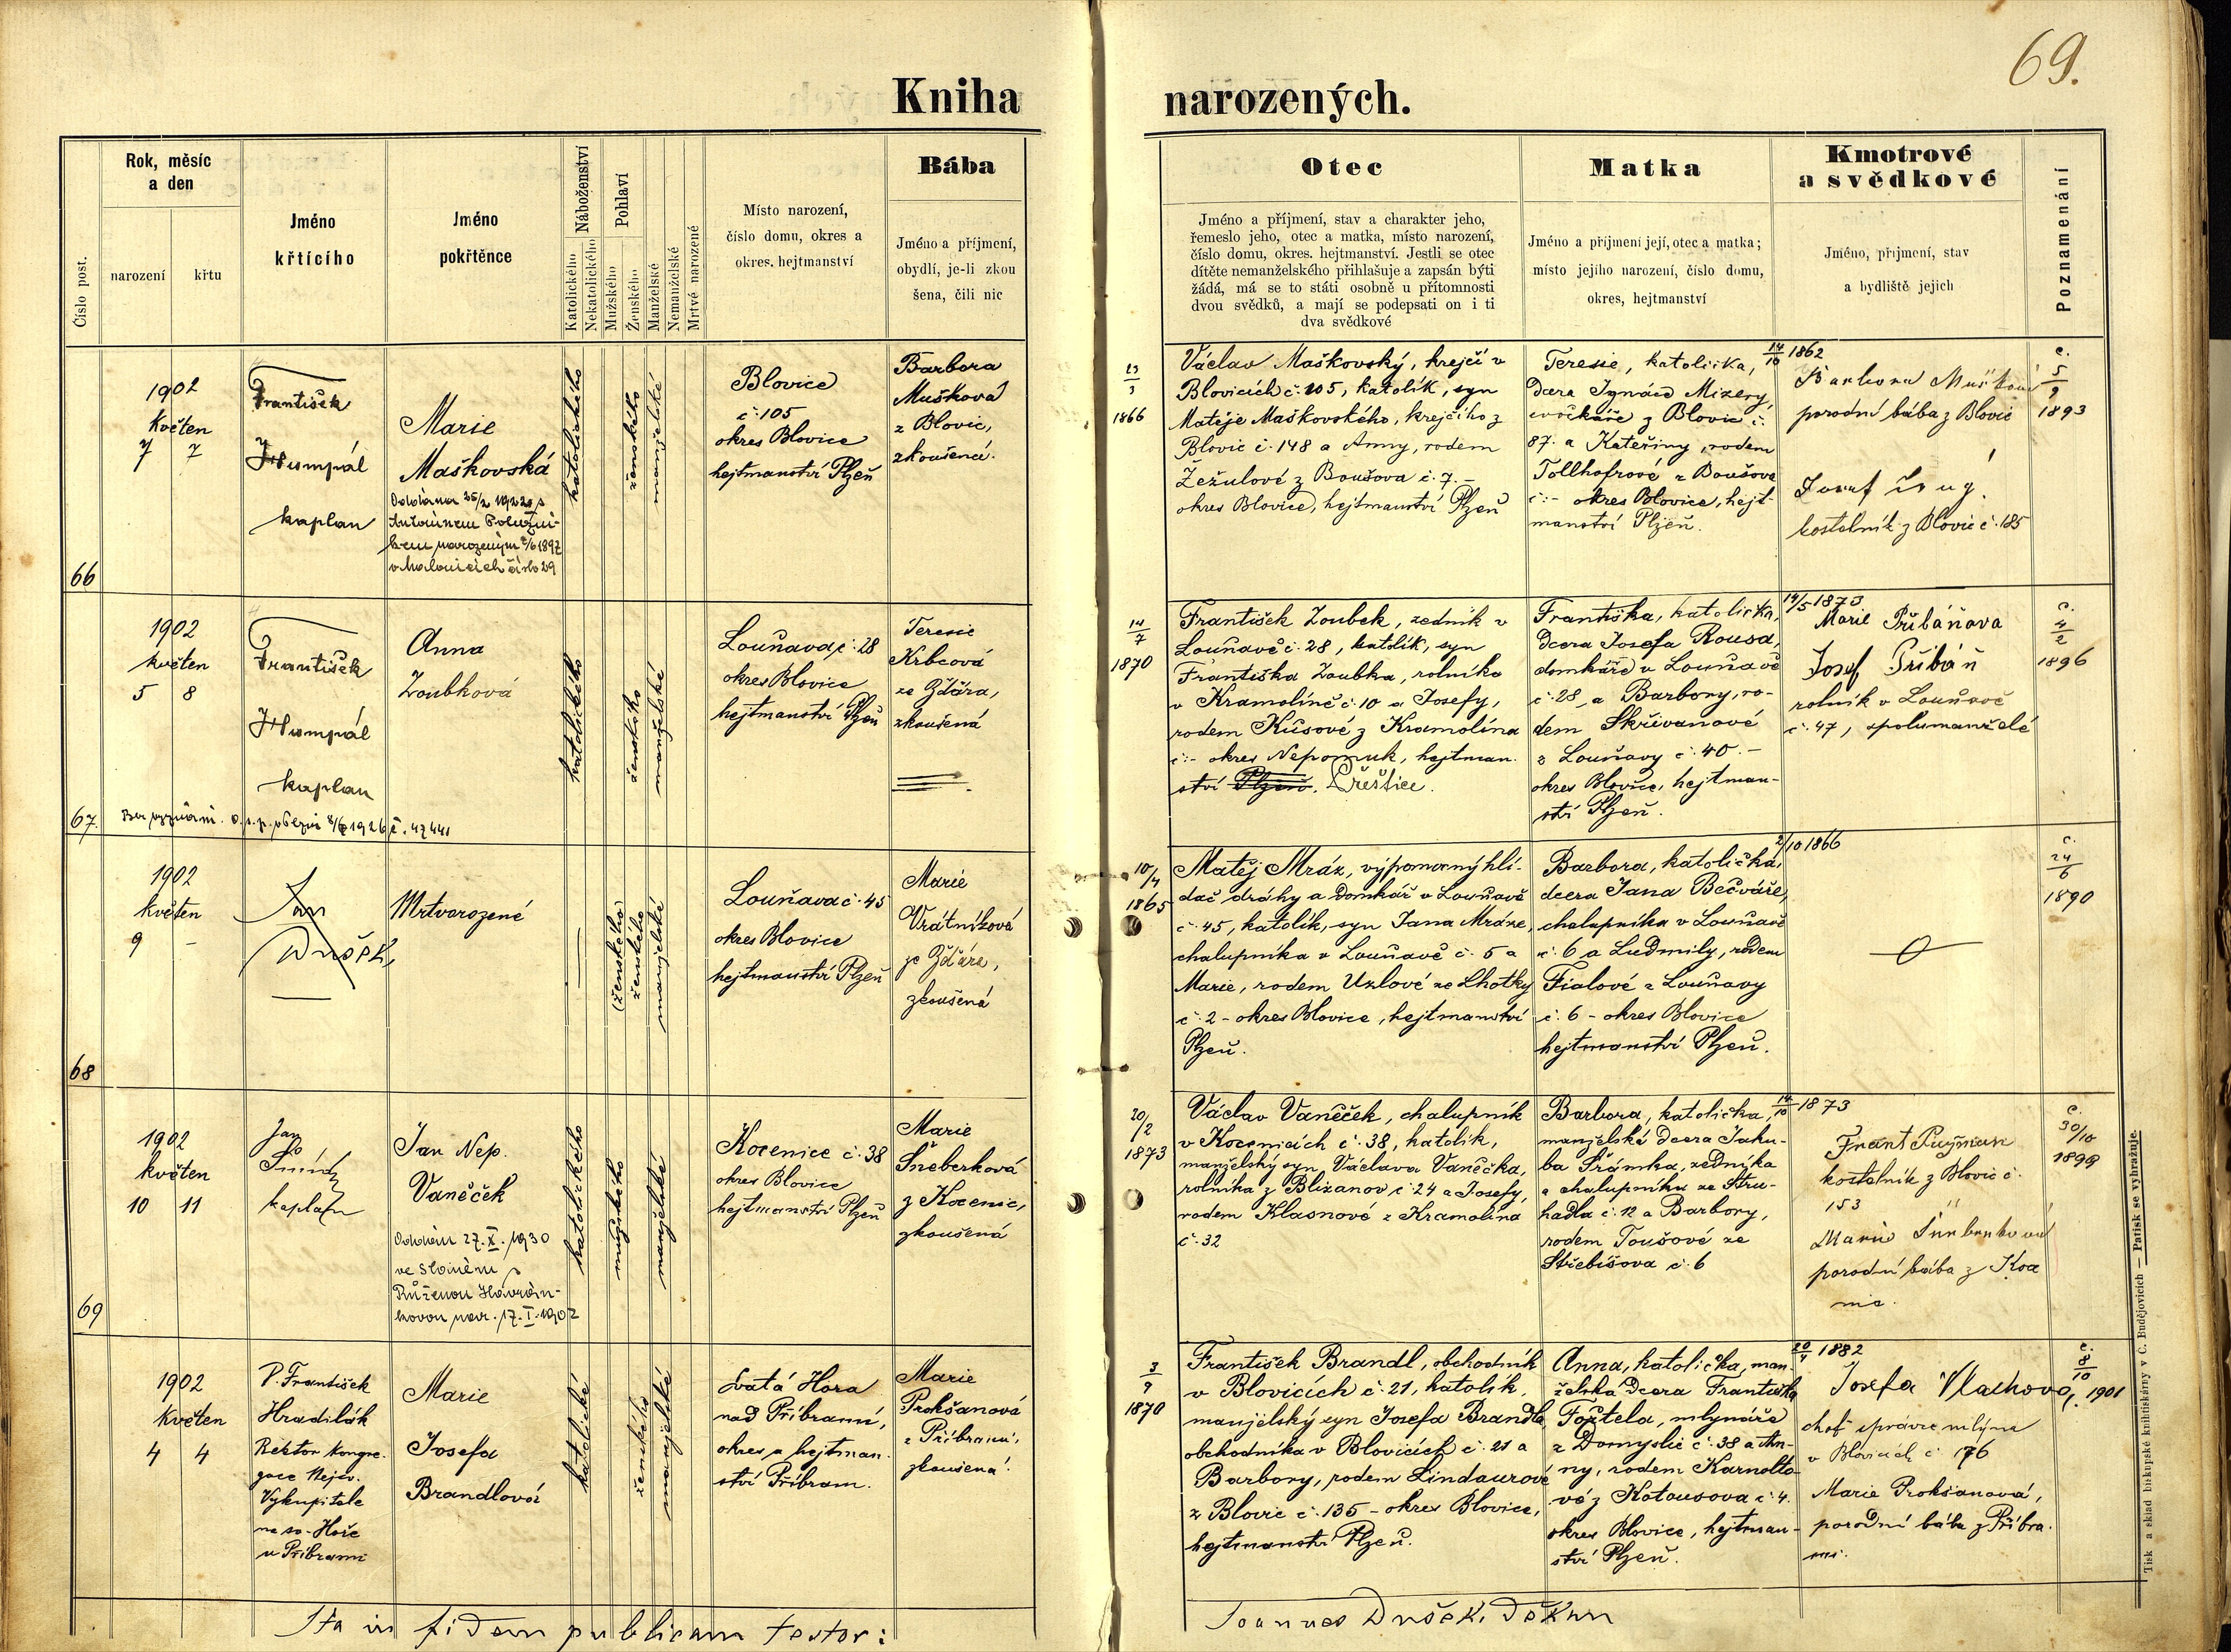 69.
Kniha narozených.
Číslo post.
Rok, měsíc
a den
narození
křtu
Jméno
křtícího
Jméno
pokřtěnce
Náboženství
Katolického
Nekatolického
Pohlaví
Mužského
Ženského
Manželské
Nemanželské
Mrtvě narozené
Místo narození,
číslo domu, okres a
okres. hejtmanství
Bába
Jméno a příjmení,
obydlí, je-li zkou
šena, čili nic
Otec
Jméno a příjmení, stav a charakter jeho,
řemeslo jeho, otec a matka, místo narození,
číslo domu, okres. hejtmanství. Jestli se otec
dítěte nemanželského přihlašuje a zapsán býti
žádá, má se to státi osobně u přítomnosti
dvou svědků, a mají se podepsati on i ti
dva svědkové
Matka
Jméno a příjmení její, otec a matka;
místo jejího narození, číslo domu,
okres, hejtmanství
Kmotrové
a svědkové
Jméno, příjmení, stav
a bydliště jejich
Poznamenání
66
1902
Květen
7 7
František
Humpál
kaplan
Marie
Maškovská
Oddána 25/2 1922 s
Antonínem
narozeným 2/6 1897
číslo 29
katolického
ženského
manželské
Blovice
č. 105
okres Blovice
hejtmanství Plzeň
Barbora
Mušková
z Blovic,
zkoušená.
23
3
1866
Václav Maškovský, krejčí v
Blovicích č. 105, katolík, syn
Matěje Maškovského, krejčího z
Blovic č. 148 a Anny, rodem
Žežulové z Boušova č. 7. –
okres Blovice, hejtmanství Plzeň
14
10 1862
Teresie, katolička,
dcera Ignáce Mizery,
cvočkáře z Blovic č.
87. a Kateřiny, rodem
Tollhofrové z Boušova
č. – okres Blovice, hejt-
manství Plzeň.
Barbora Mušková
porodní bába z Blovic
Josef
kostelník z Blovic č. 185
c.
5
9
1893
67.
1902
květen
5 8
František
Humpál
kaplan
Bez vyznání. o. s. p. v Plzni 1926 č. 47441
Anna
Zoubková
katolického
ženského
manželské
Louňava č. 28
okres Blovice
hejtmanství Plzeň
Teresie
Krbcová
ze Žďára,
zkoušená
14
7
1870
František Zoubek, zedník v
Louňavě č. 28, katolík, syn
Františka Zoubka, rolníka
v Kramolíně č. 10 a Josefy,
rodem Kůsové z Kramolína
č. – okres Nepomuk, hejtman-
ství Plzeň. Přeštice.
14/5 1873
Františka, katolička,
dcera Josefa Rousa,
domkáře v Louňavě
č. 28, a Barbory, ro-
dem Skřivanové
z Louňavy č. 40. –
okres Blovice, hejtman-
ství Plzeň.
Marie Přibáňova
Josef Přibáň
rolník v Louňavě
č. 47, spolumanželé
c.
4
2
1896
68
1902
květen
9 –
Jan
Dušek,
Mrtvorozené
(ženského)
ženského
manželské
Louňava č. 45
okres Blovice
hejtmanství Plzeň
Marie
Vrátníková
ze Žďára,
zkoušená
10/4
1865
Matěj Mráz, výpomocný hlí-
dač dráhy a domkář v Louňavě
č. 45, katolík, syn Jana Mráze,
chalupníka v Louňavě č. 5 a
Marie, rodem Uzlové ze Lhotky
č. 2 – okres Blovice, hejtmanství
Plzeň.
2/10 1866
Barbora, katolička,
dcera Jana Bečváře,
chalupníka v Louňavě
č. 6 a Ludmily, rodem
Fialové z Louňavy
č. 6 – okres Blovice
hejtmanství Plzeň.
c.
24
6
1890
69
1902
květen
10 11
Jan
kaplan
Jan Nep.
Vaněček
Oddán 27. X. 1930
ve
Růženou Havrán-
kovou nar. 17. I. 1902
katolického
mužského
manželské
Kocenice č. 38
okres Blovice
hejtmanství Plzeň
Marie
Šneberková
z Kocenic,
zkoušená
20/2
1873
Václav Vaněček, chalupník
v Kocenicích č. 38, katolík,
manželský syn Václava Vaněčka,
rolníka z Blizanov č. 24 a Josefy,
rodem Klasnové z Kramolína
č. 32
14
10 1873
Barbora, katolička,
manželská dcera Jaku-
ba Šrámka, zedníka
a chalupníka ze Stru-
hadla č. 12 a Barbory,
rodem Toušové ze
Střebišova č. 6
Frant
kostelník z Blovic č.
153
Marie Šneberková
porodní bába z Koce
nic.
c.
30/10
1899
1902
Květen
4 4
P. František
Hradilák
Rektor kongre-
gace Nejsv.
Vykupitele
na sv. Hoře
u Příbrami
Marie
Josefa
Brandlová
katolické
ženského
manželské
Svatá Hora
nad Příbramí,
okres a hejtman-
ství Příbram.
Marie
Prokšanová
z Příbrami,
zkoušená.
3
9
1870
František Brandl, obchodník
v Blovicích č. 21, katolík,
manželský syn Josefa Brandla,
obchodníka v Blovicích č. 21 a
Barbory, rodem Lindaurové
z Blovic č. 135 – okres Blovice,
hejtmanství Plzeň.
20
4 1882
Anna, katolička, man-
želská dcera Františka
Fořtela, mlynáře
z Domyslic č. 38 a An-
ny, rodem Karnolto-
vé z Kotousova č. 4.
okres Blovice, hejtman-
ství Plzeň.
Josefa Vlachova,
choť správce mlýna
v Blovicích č. 176
Marie Prokšanová,
porodní bába z Příbra-
mi.
c.
8
10
1901
Ita in fidem publicam testor:
Joannes Dušek, děkan
Tisk a sklad biskupské knihtiskárny v Č. Budějovicích — Patisk se vyhražuje.